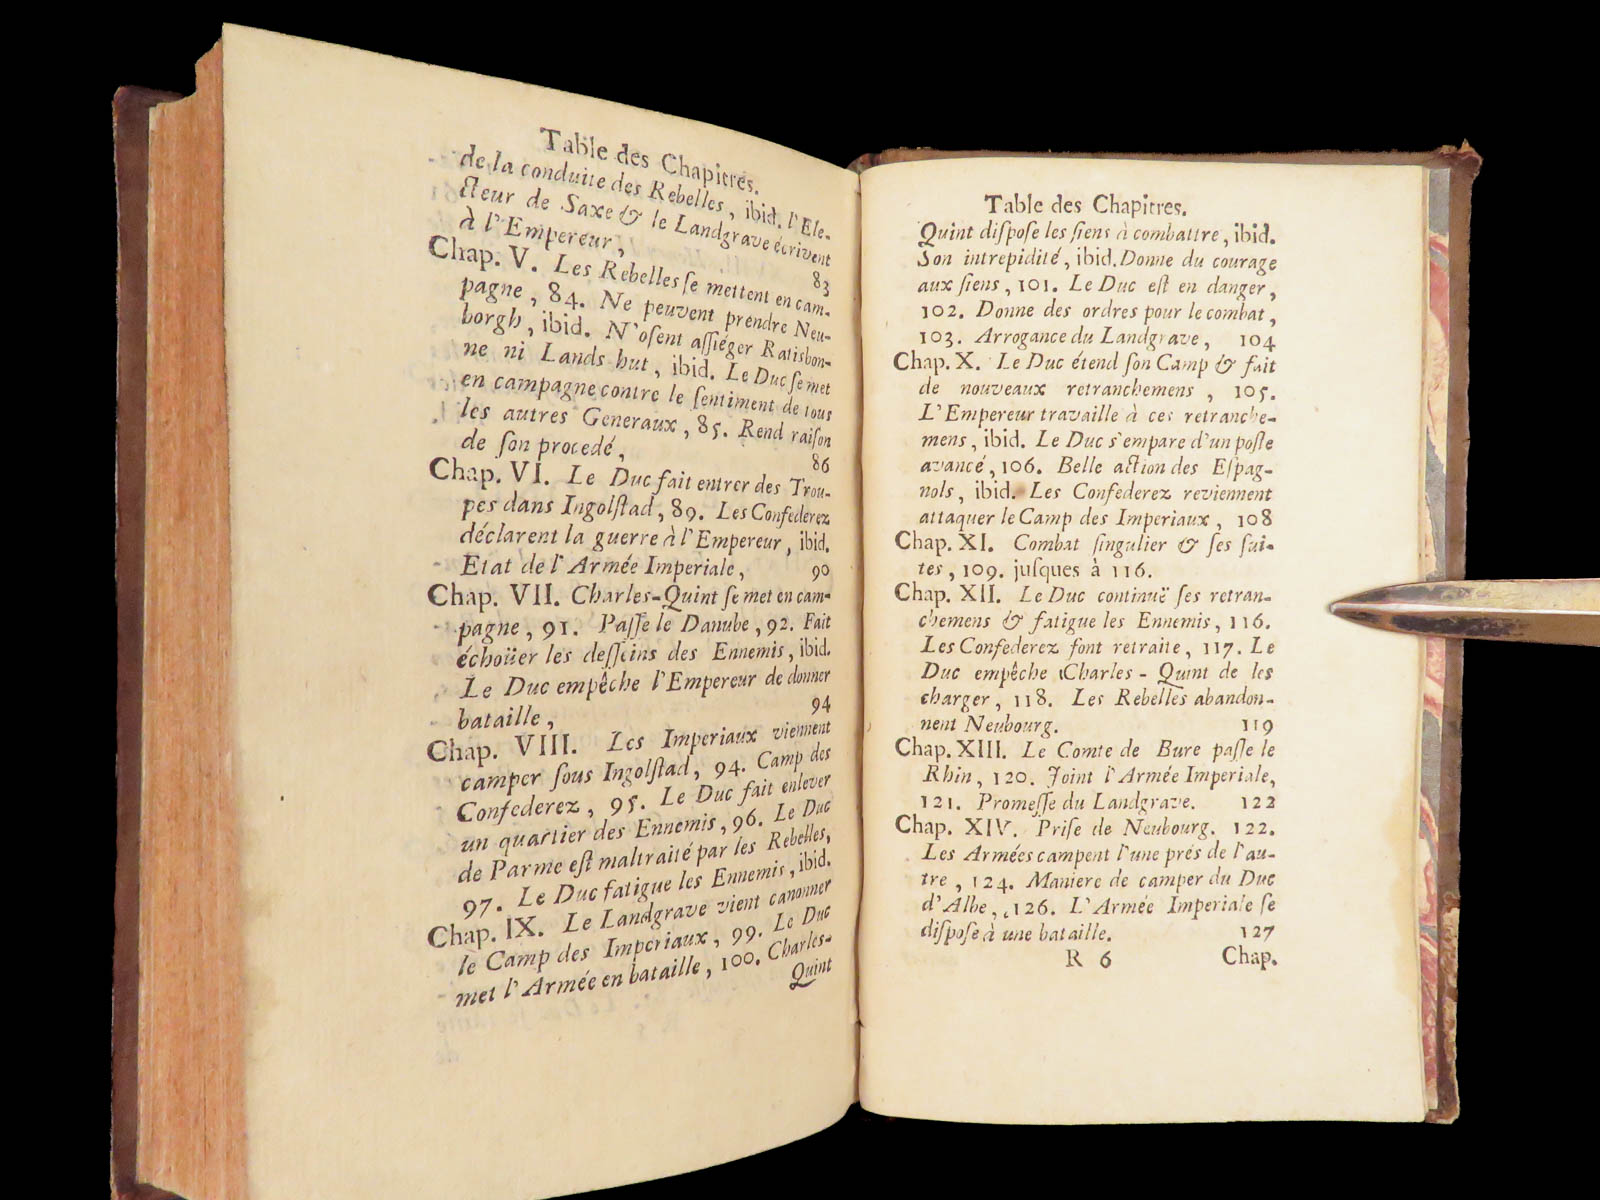 Table des Chapitres.
de la conduite des Rebelles, ibid. l'Ele-
cteur de Saxe & le Landgrave écrivent
à l'Empereur, 83
Chap. V. Les Rebelles ſe mettent en cam-
pagne, 84. Ne peuvent prendre Neu-
borgh, ibid. N'oſent aſſiéger Ratisbon-
ne ni Lands hut, ibid. Le Duc ſe met
en campagne contre le ſentiment de tous
les autres Generaux, 85. Rend raiſon
de ſon procedé, 86
Chap. VI. Le Duc fait entrer des Trou-
pes dans Ingolſtad, 89. Les Confederez
déclarent la guerre à l'Empereur, ibid.
Etat de l'Armée Imperiale, 90
Chap. VII. Charles-Quint ſe met en cam-
pagne, 91. Paſſe le Danube, 92. Fait
échoüer les deſſeins des Ennemis, ibid.
Le Duc empêche l'Empereur de donner
bataille, 94
Chap. VIII. Les Imperiaux viennent
camper ſous Ingolſtad, 94. Camp des
Confederez, 95. Le Duc fait enlever
un quartier des Ennemis, 96. Le Duc
de Parme eſt maltraité par les Rebelles,
97. Le Duc fatigue les Ennemis, ibid.
Chap. IX. Le Landgrave vient canonner
le Camp des Imperiaux, 99. Le Duc
met l'Armée en bataille, 100. Charles-
Quint
Table des Chapitres.
Quint diſpoſe les ſiens à combattre, ibid.
Son intrepidité, ibid. Donne du courage
aux ſiens, 101. Le Duc eſt en danger,
102. Donne des ordres pour le combat,
103. Arrogance du Landgrave, 104
Chap. X. Le Duc étend ſon Camp & fait
de nouveaux retranchemens, 105.
L'Empereur travaille à ces retranche-
mens, ibid. Le Duc s'empare d'un poſte
avancé, 106. Belle action des Eſpag-
nols, ibid. Les Confederez reviennent
attaquer le Camp des Imperiaux, 108
Chap. XI. Combat ſingulier & ſes ſui-
tes, 109. juſques à 116.
Chap. XII. Le Duc continuë ſes retran-
chemens & fatigue les Ennemis, 116.
Les Confederez font retraite, 117. Le
Duc empêche Charles-Quint de les
charger, 118. Les Rebelles abandon-
nent Neubourg. 119
Chap. XIII. Le Comte de Bure paſſe le
Rhin, 120. Joint l'Armée Imperiale,
121. Promeſſe du Landgrave. 122
Chap. XIV. Priſe de Neubourg. 122.
Les Armées campent l'une prés de l'au-
tre, 124. Maniere de camper du Duc
d'Albe, 126. L'Armée Imperiale ſe
diſpoſe à une bataille. 127
R 6 Chap.